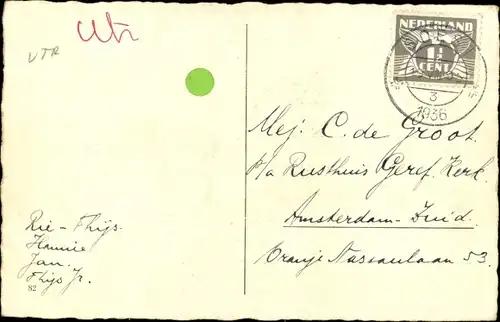 Utr
UTR
NEDERLAND
1½
CENT
3
1936
Mej. C. de Groot.
p/a Rusthuis Geref. Kerk.
Amsterdam-Zuid.
Oranje Nassaulaan 53.
Rie - Thijs.
Hannie
Jan.
Thijs Jr.
82